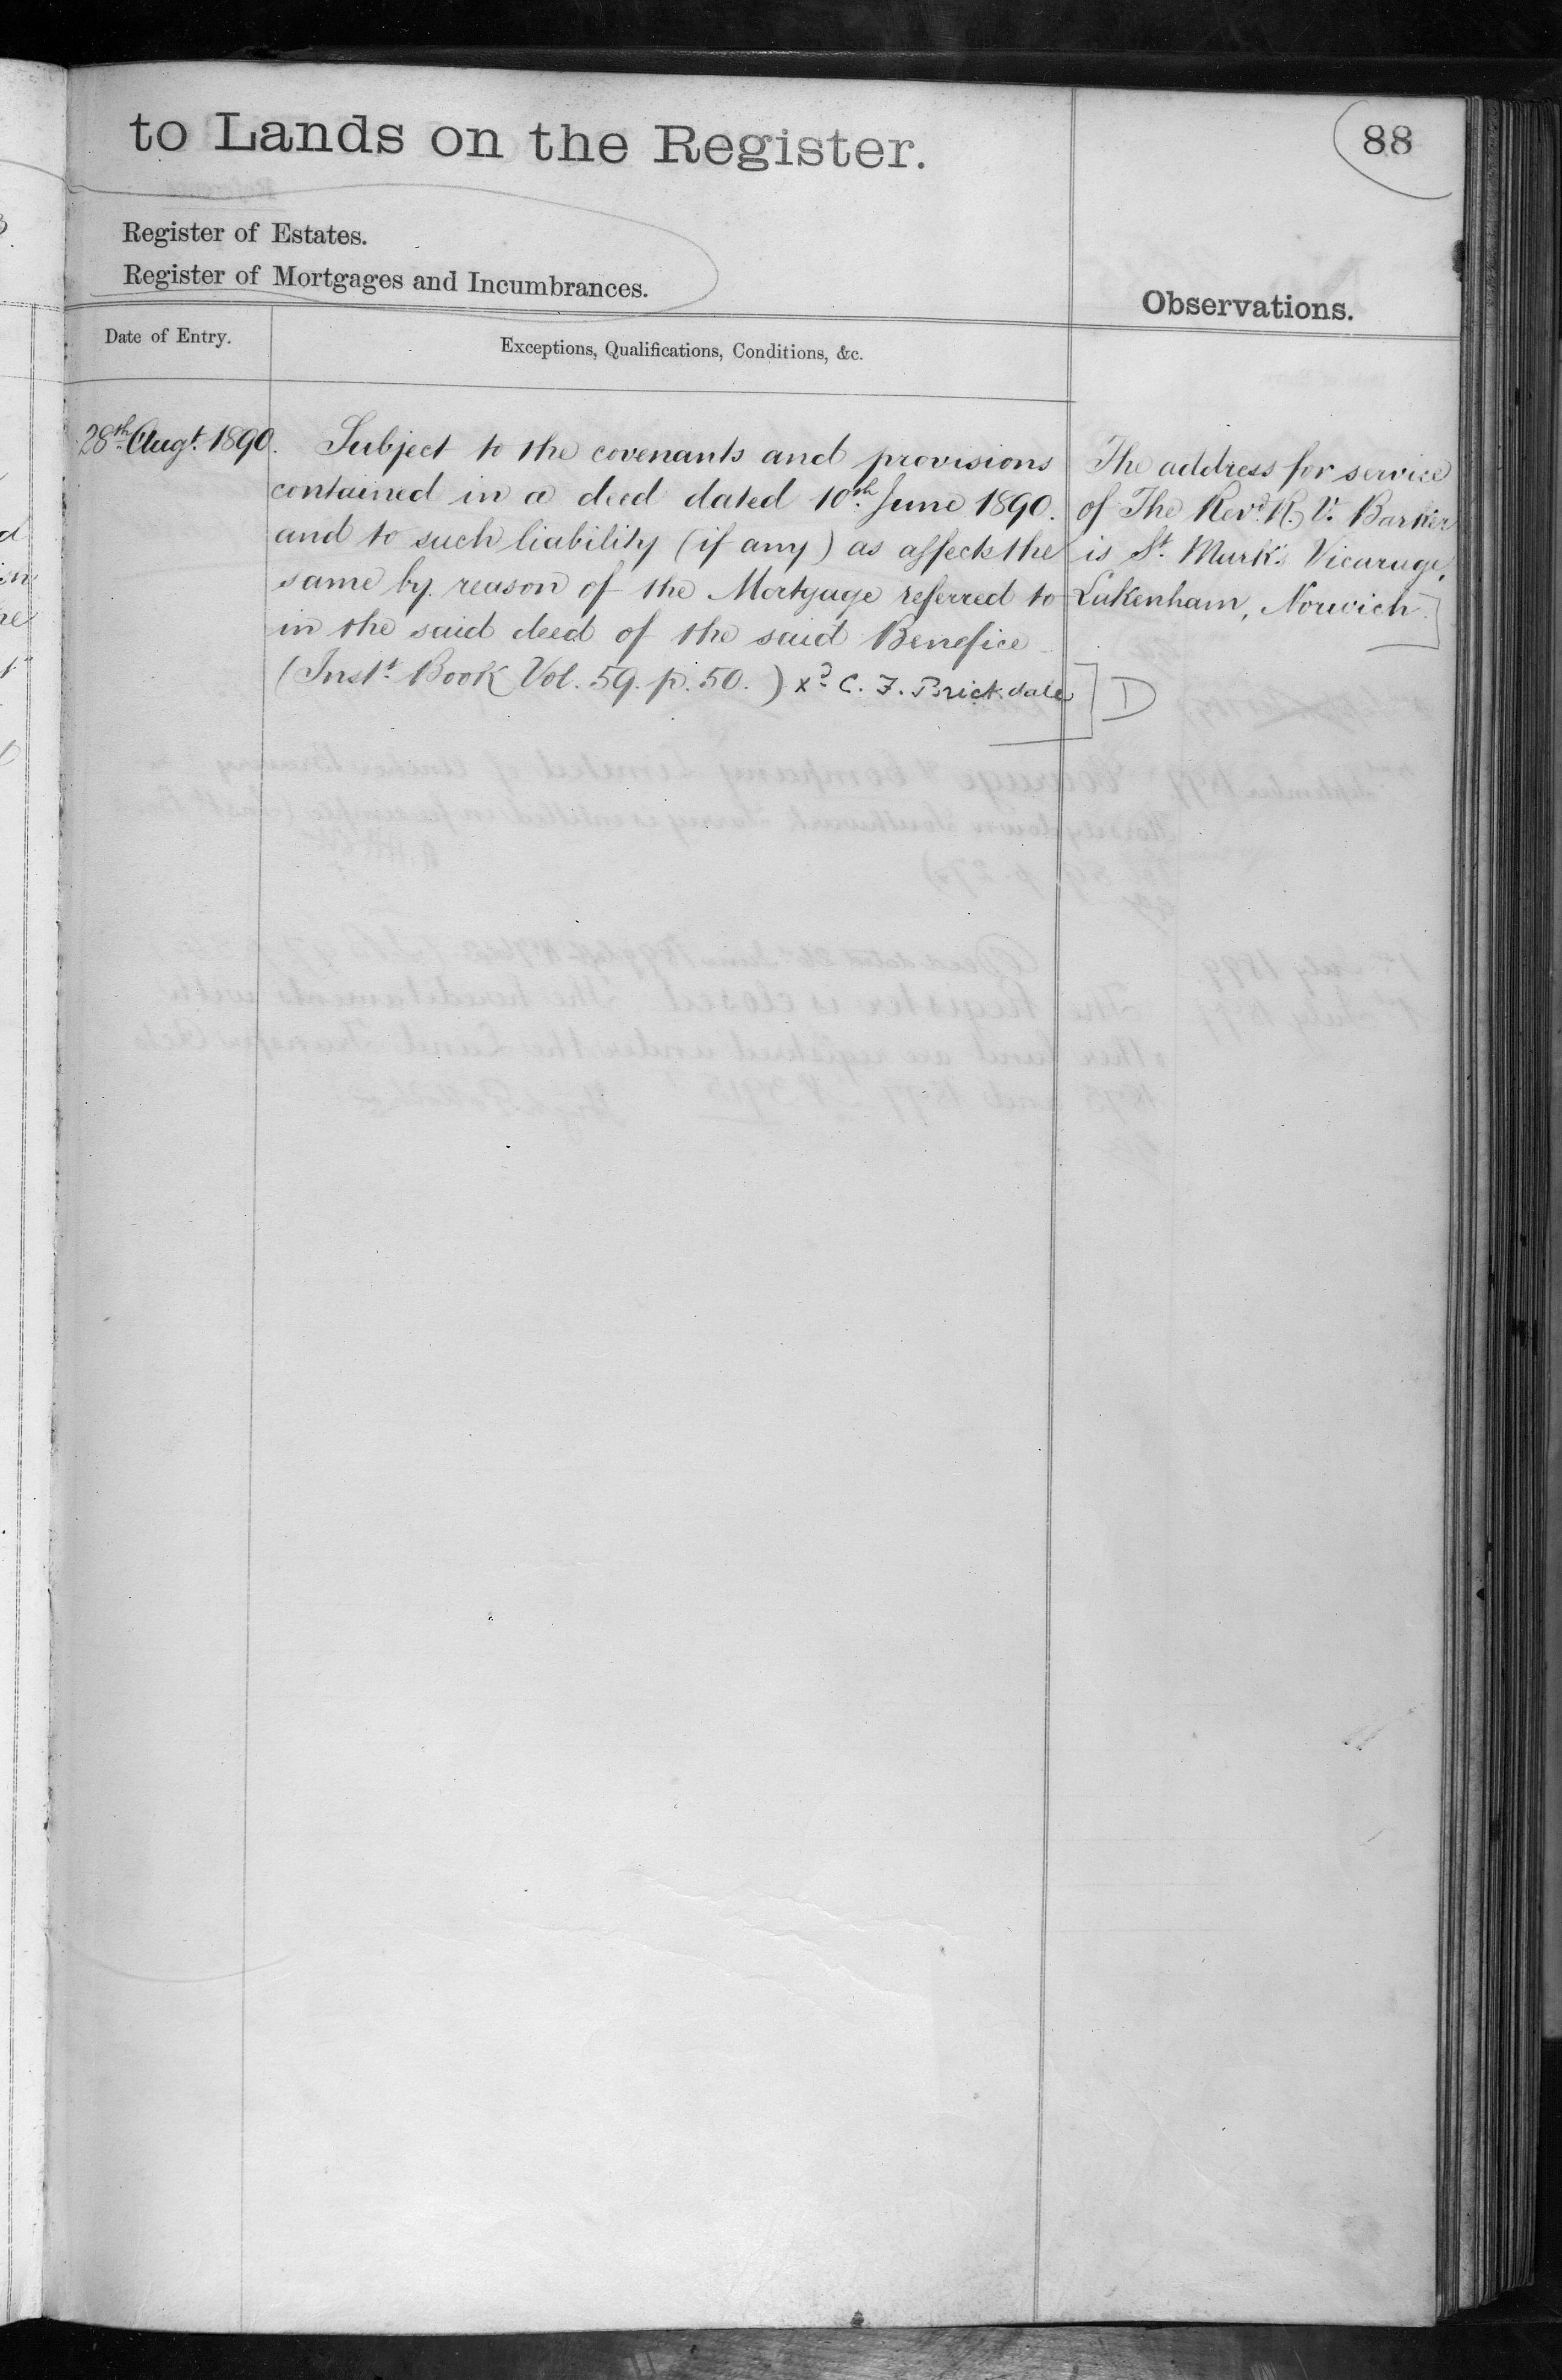 to Lands on the Register.
88
Register of Estates.
Register of Mortgages and Incumbrances.
Observations.
Date of Entry.
Exceptions, Qualifications, Conditions, &c.
28th Augt. 1890.
Subject to the covenants and provisions
contained in a deed dated 10th June 1890.
and to such liability (if any) as affects the
same by reason of the Mortgage referred to
in the said deed of the said Benefice
(Instt. Book Vol. 59. p. 50.) xd. C. F. Brickdale
D
The address for service
of The Revd. R. V. Barker
is St. Mark's Vicarage,
Lakenham, Norwich.